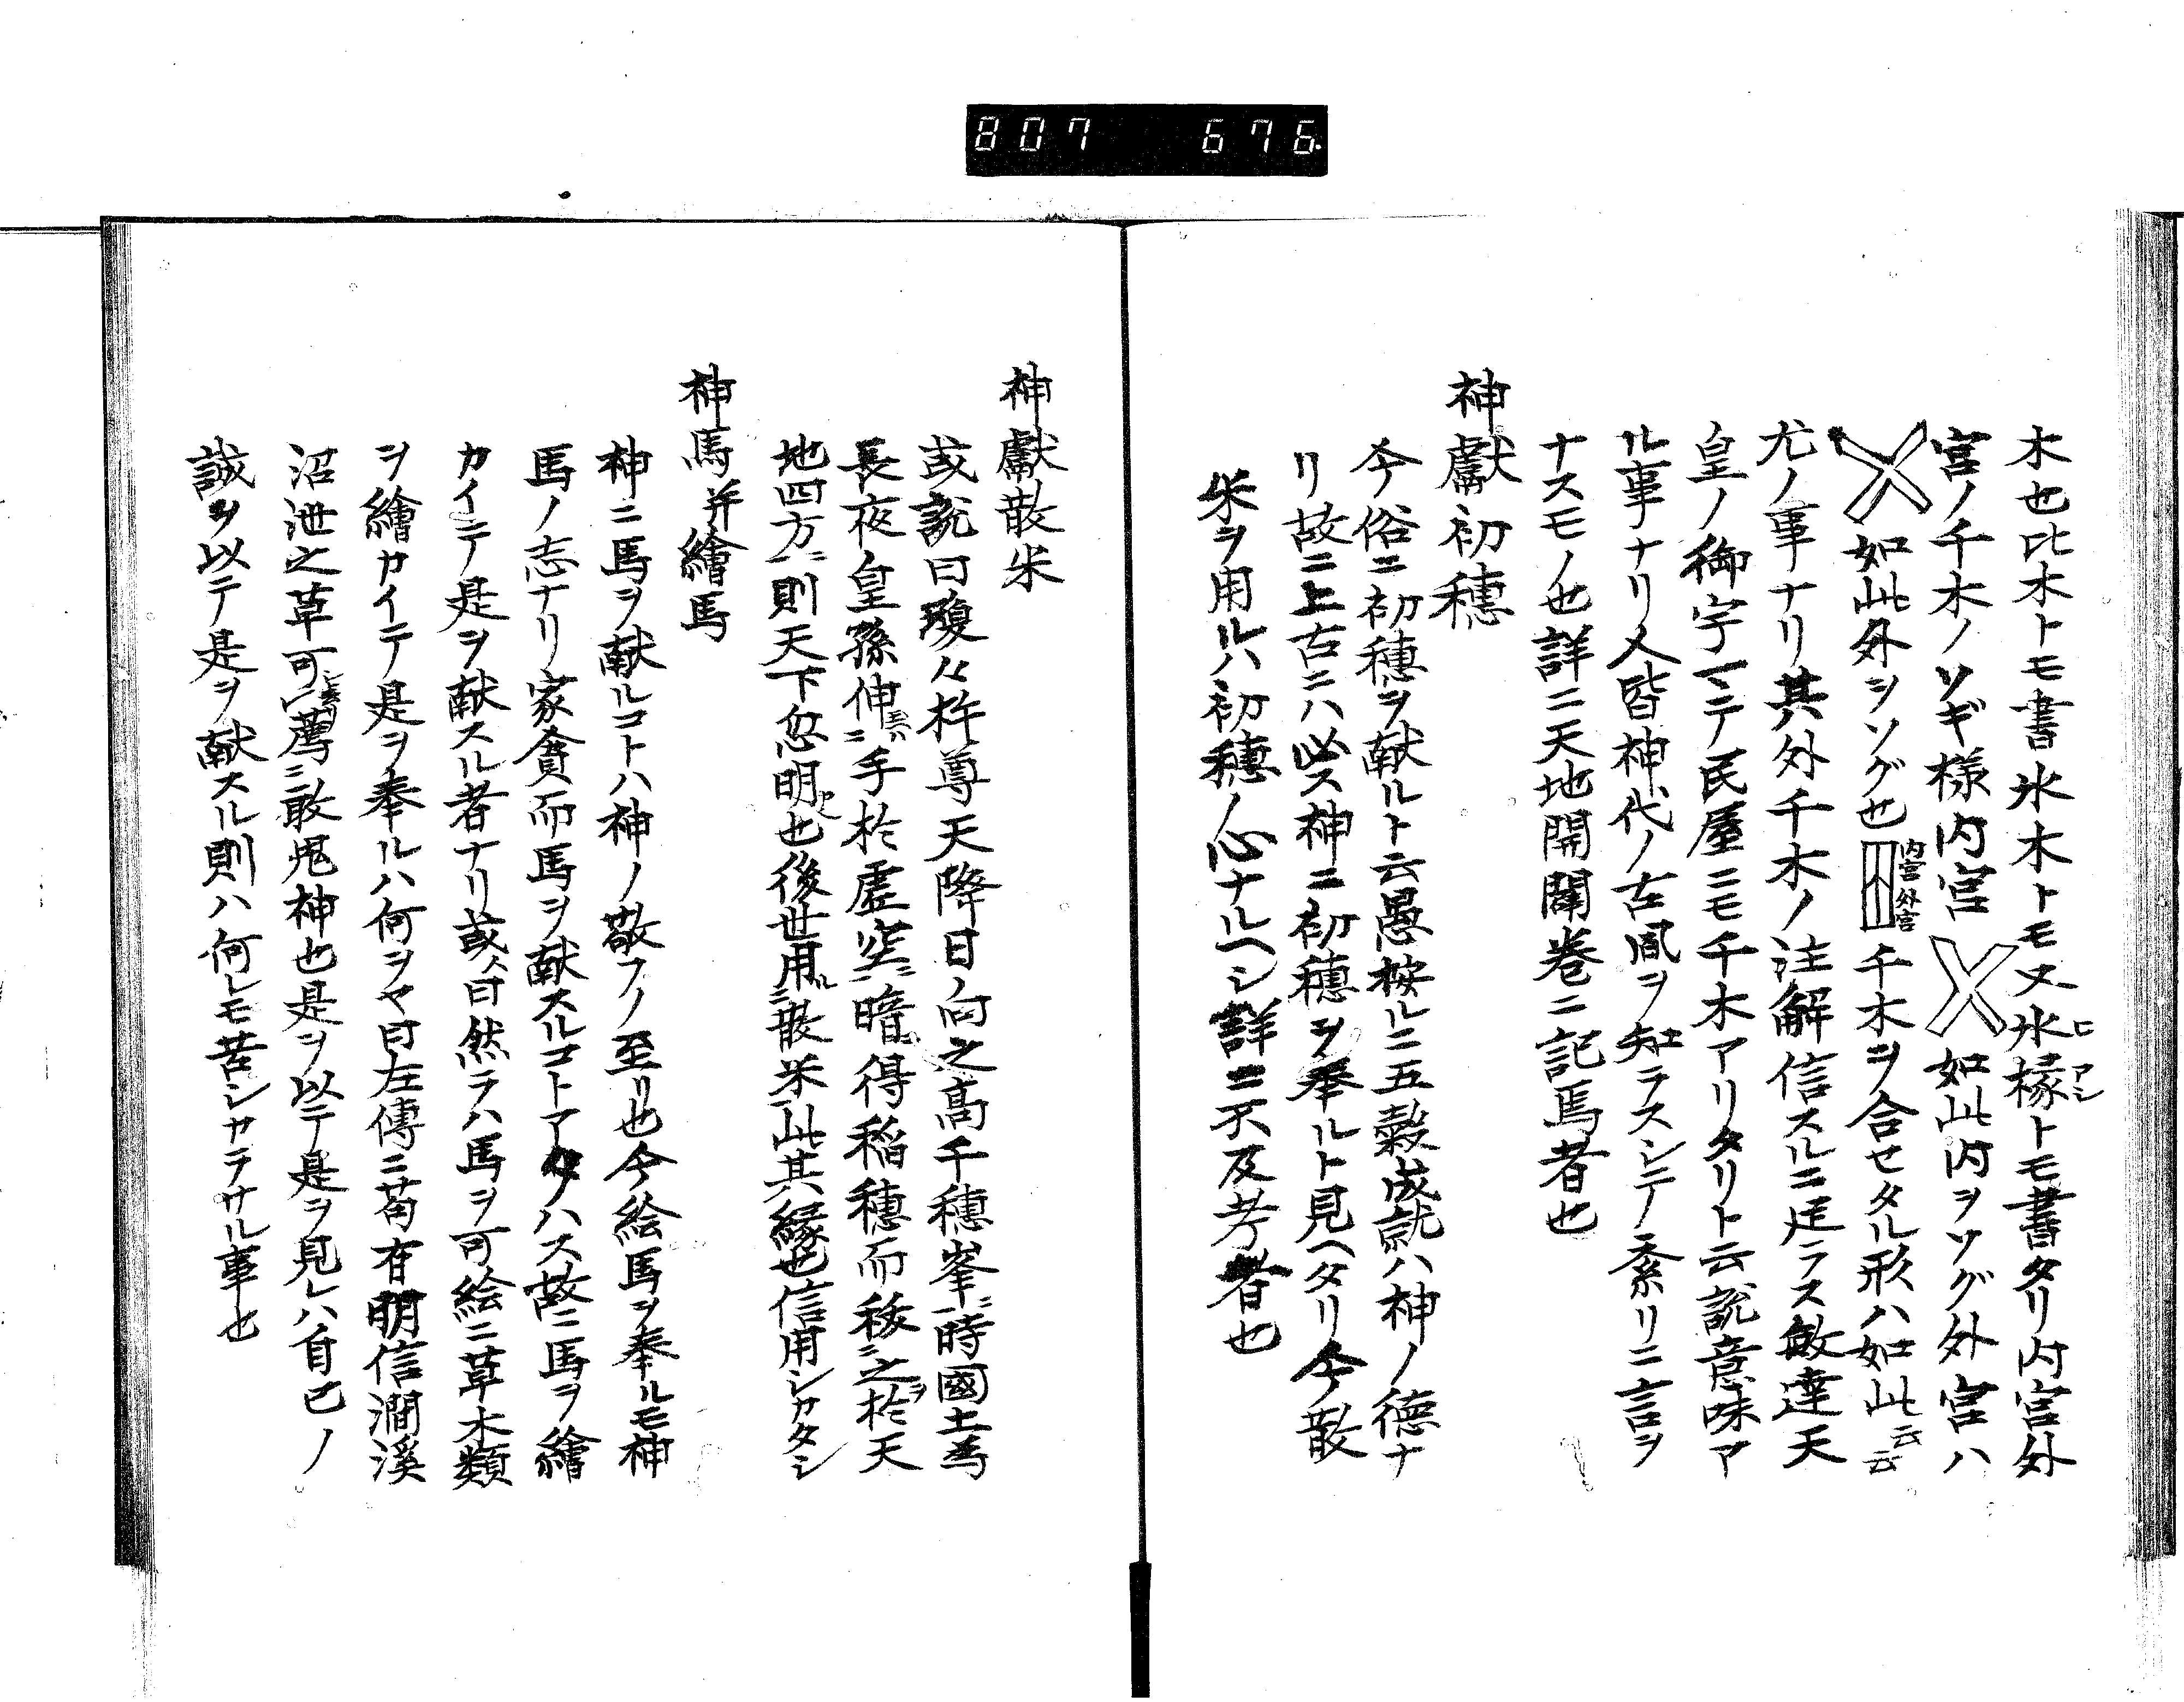 807 676
木也比木トモ書氷木トモ又氷椽トモ書タリ内宮外
ヒアシ
宮ノ千木ノソギ様内宮 如此内ヲソグ外宮ハ
如此外ヲソグ也 千木ヲ合セタル形ハ如此云云
内宮外宮
尤ノ事ナリ其外千木ノ注解信スルニ足ラス敏達天
皇ノ御宇マテ民屋ニモ千木アリタリト云説意味ア
ル事ナリ人皆神代ノ古風ヲ知ラスシテ紊リニ言ヲ
ナスモノ也詳ニ天地開闢巻ニ記焉者也
神獻初穗
今俗ニ初穗ヲ献ルト云愚按ルニ五穀成就ハ神ノ德ナ
リ故ニ上古ニハ必ス神ニ初穗ヲ奉ルト見ヘタリ今散
米ヲ用ルハ初穗ノ心ナルヘシ詳ニ不及考者也
神獻散米
或説曰瓊々杵尊天降日ノ向之高千穗峯ニ時國土爲
長夜皇孫伸ニ手於虛空ニ暗得稲穗而ニ之ヲ於天
地四方ニ則天下忽明也後世用ルニ散米此其縁也信用シカタシ
神馬并繪馬
神ニ馬ヲ献ルコトハ神ノ敬フノ至リ也今絵馬ヲ奉ルモ神
馬ノ志ナリ家貧而馬ヲ献スルコトアタハス故ニ馬ヲ繪
カイテ是ヲ献スル者ナリ或人曰然ラハ馬ヲ可絵ニ草木類
ヲ繪カイテ是ヲ奉ルハ何ヲヤ曰左傳ニ苟有明信澗溪
沼沚之草可薦ニ敢鬼神也是ヲ以テ是ヲ見レハ自己ノ
誠ヲ以テ是ヲ献スル則ハ何レモ苦シカラサル事也